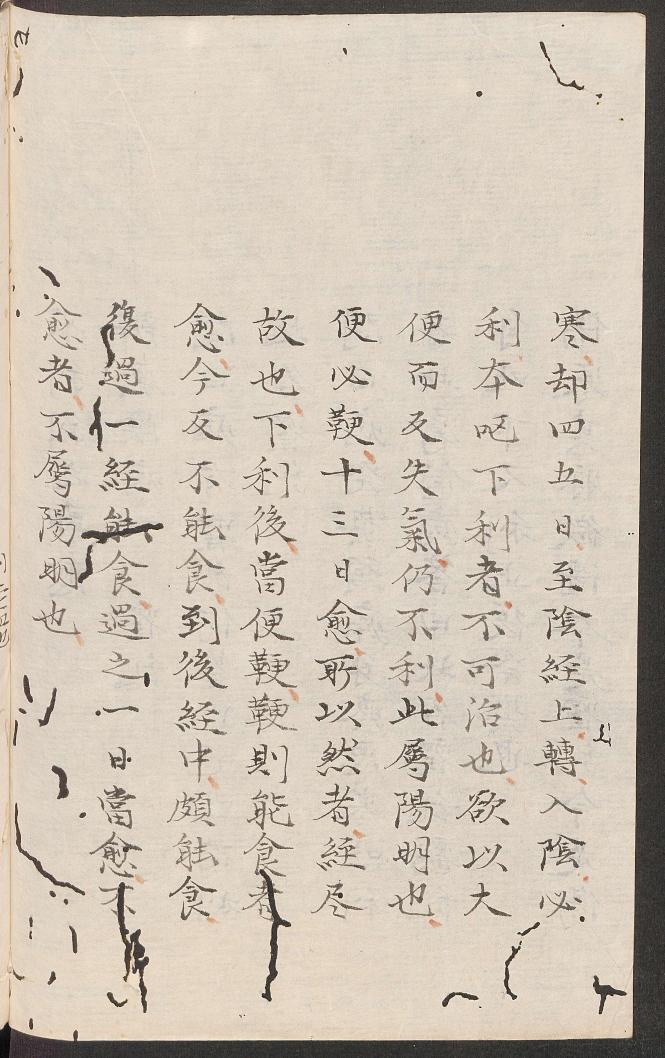 寒却四五日至陰經上轉入陰必
利本呕下利者不可治也欲以大
便而反失氣仍不利此屬陽明也
便必鞕十三日愈所以然者經尽
故也下利後當便鞕鞕則能食者
愈今反不能食到後經中頗能食
復過一經能食過之一日當愈不
愈者不屬陽明也